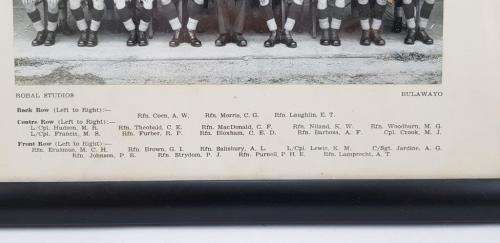 ROBAL STUDIOS BULAWAYO
Back Row (Left to Right):—
Rfn. Coen, A. W. Rfn. Morris, C. G. Rfn. Laughlin, E. T.
Centre Row (Left to Right):—
L/Cpl. Hudson, M. R. Rfn. Theobald, C. K. Rfn. MacDonald, C. F. Rfn. Niland, K. W. Rfn. Woodburn, M. G.
L/Cpl. Francis, M. S. Rfn. Furber, R. P. Rfn. Bloxham, C. E. D. Rfn. Barbosa, A. F. Cpl. Crook, M. J.
Front Row (Left to Right):—
Rfn. Erasmus, M. C. H. Rfn. Brown, G. I. Rfn. Salisbury, A. L. L/Cpl. Lewis, K. M. C/Sgt. Jardine, A. G.
Rfn. Johnson, P. R. Rfn. Strydom, P. J. Rfn. Purnell, P. H. E. Rfn. Lamprecht, A. T.